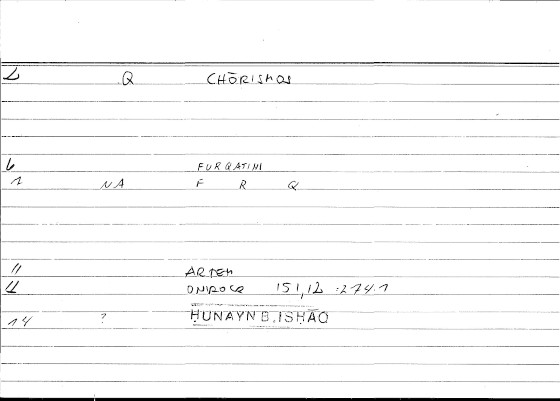 2 Q CHŌRISMOS
6 FURQATINI
7 NA F R Q
11 ARTEM
12 ONIROCR 151,12 :274.1
14 ? ḤUNAYN B. ISḤĀQ